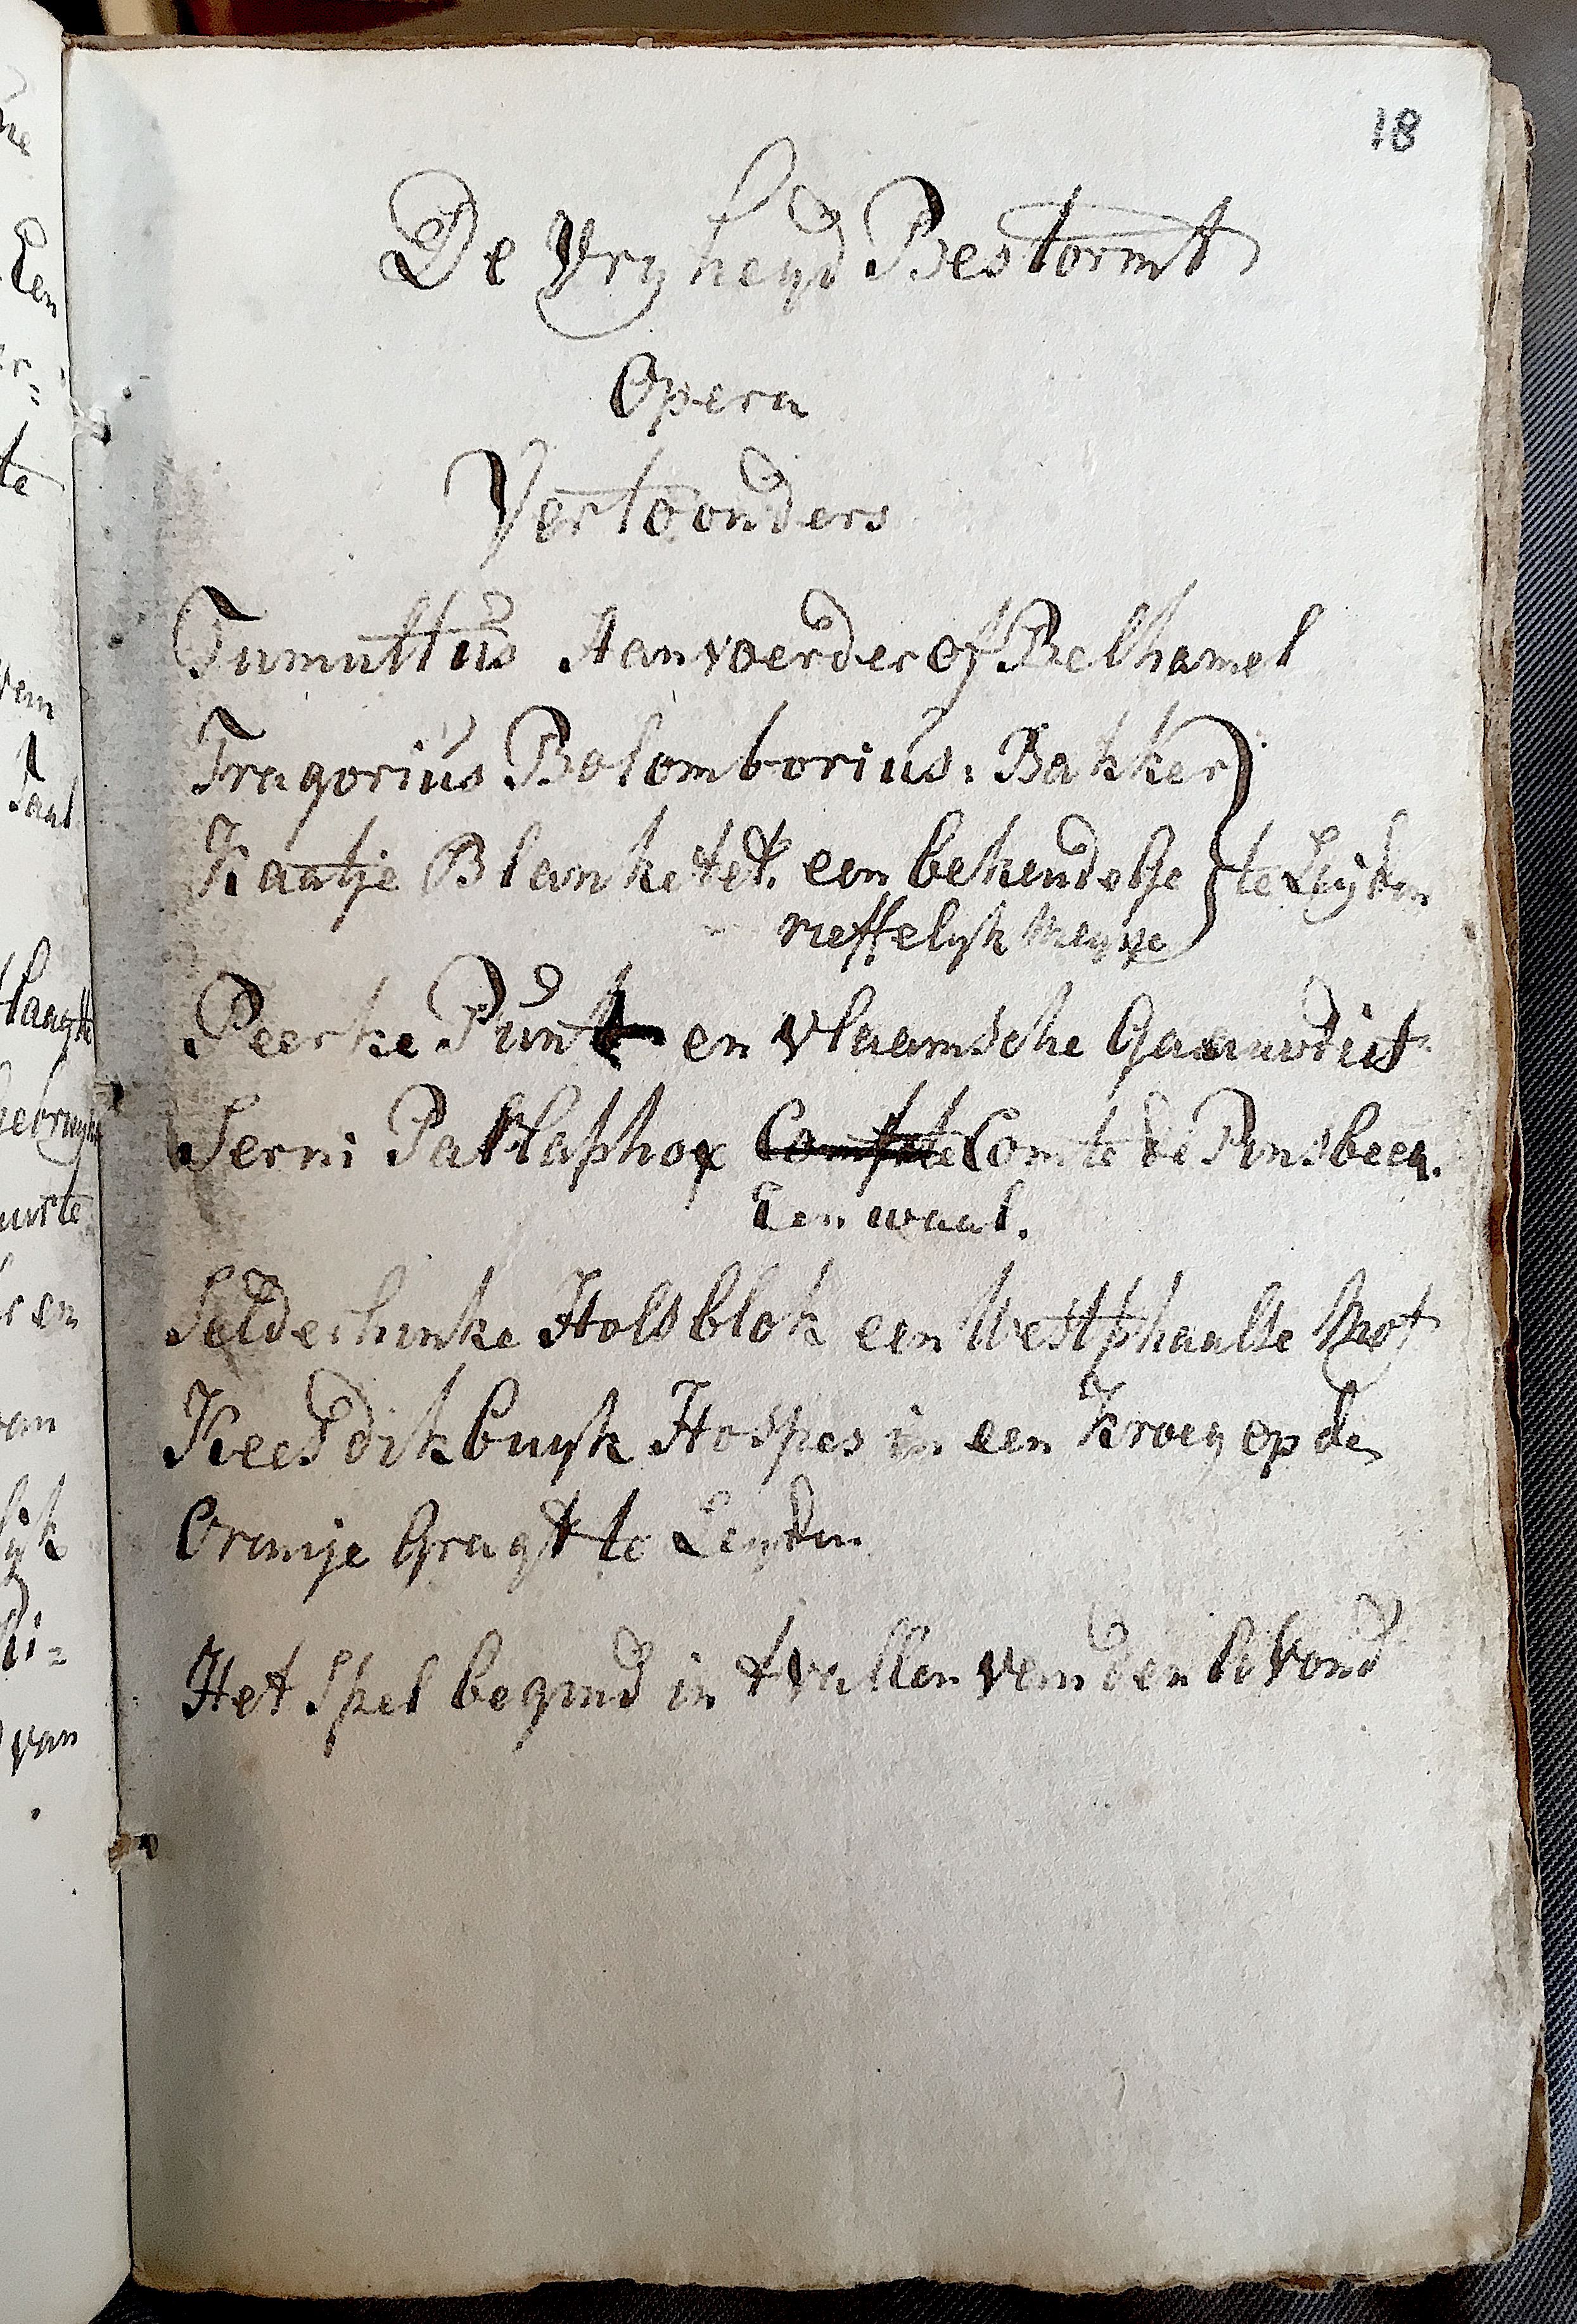 18
De Vryheyd Bestormt
Opera
Vertoonders
Tumultus Aanvoerder of Belhamel
Fragorius Bolomborius: Bakker
Kaatje Blanketet. een bekende Ge te Leyden
neffelyk Meysje
Peerke Punt en vlaamsche Gaauwdief
Serni Patlaphox Comte de Ponsbeea.
Een waal.
Selderhinke Holsblok een Westphaalse Mof
Kees dikbuyk Hospes in een Kroeg op de
Oranje Gragt te Leyden
Het Spel begind in t vallen van den Avond